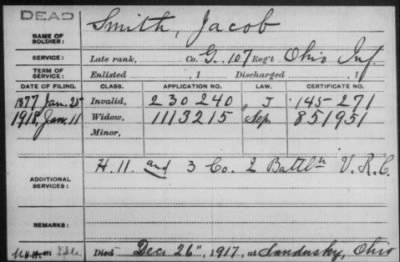 DEAD
NAME OF SOLDIER: Smith, Jacob
SERVICE: Late rank, Co. G. 107 Reg't Ohio Inf.
TERM OF SERVICE: Enlisted , 1 Discharged , 1
DATE OF FILING. CLASS. APPLICATION NO. LAW. CERTIFICATE NO.
1877 Jan. 25 Invalid, 230240 , J 145-271
1918 Jan. 11 Widow, 1113215 , Sep 851951
Minor,
ADDITIONAL SERVICES: H. 11. and 3 Co. 2 Battln V. R. C.
REMARKS:
Died Dec 26", 1917, at Sandusky, Ohio